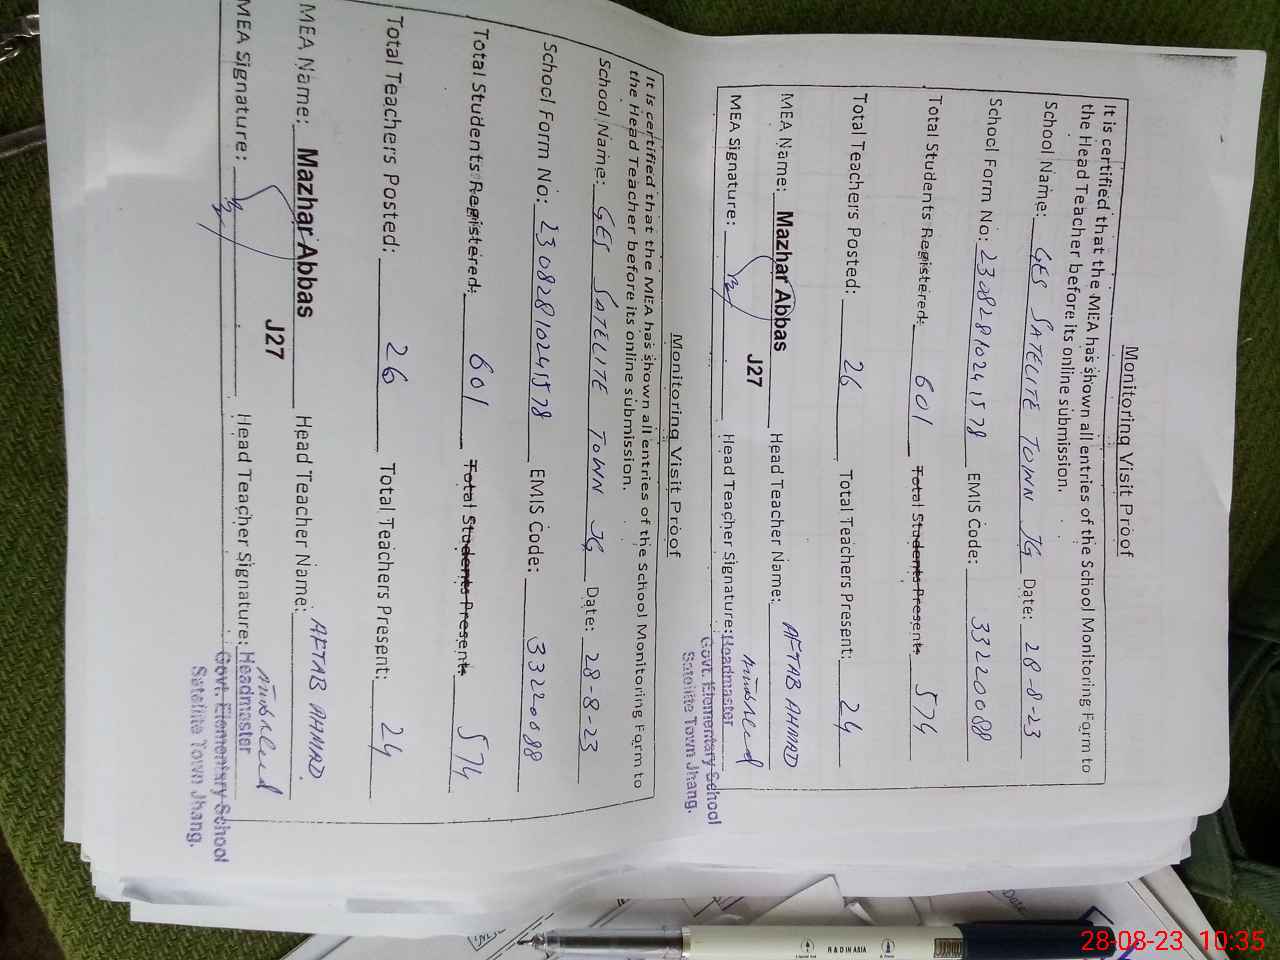 Monitoring Visit Proof
It is certified that the MEA has shown all entries of the School Monitoring Form to
the Head Teacher before its online submission.
School Name: GES SATELITE TOWN JG Date: 28-8-23
School Form No: 23082810241578 EMIS Code: 33220088
Total Students Registered: 601 Total Students Present: 574
Total Teachers Posted: 26 Total Teachers Present: 24
MEA Name: Mazhar Abbas Head Teacher Name: AFTAB AHMAD
J27
MEA Signature: Head Teacher Signature:
Headmaster
Govt. Elementary School
Satellite Town Jhang.
Monitoring Visit Proof
It is certified that the MEA has shown all entries of the School Monitoring Form to
the Head Teacher before its online submission.
School Name: GES SATELITE TOWN JG Date: 28-8-23
School Form No: 23082810241578 EMIS Code: 33220088
Total Students Registered: 601 Total Students Present: 574
Total Teachers Posted: 26 Total Teachers Present: 24
MEA Name: Mazhar Abbas Head Teacher Name: AFTAB AHMAD
J27
MEA Signature: Head Teacher Signature:
Headmaster
Govt. Elementary School
Satellite Town Jhang.
R & D IN ASIA
Date
28-08-23 10:35